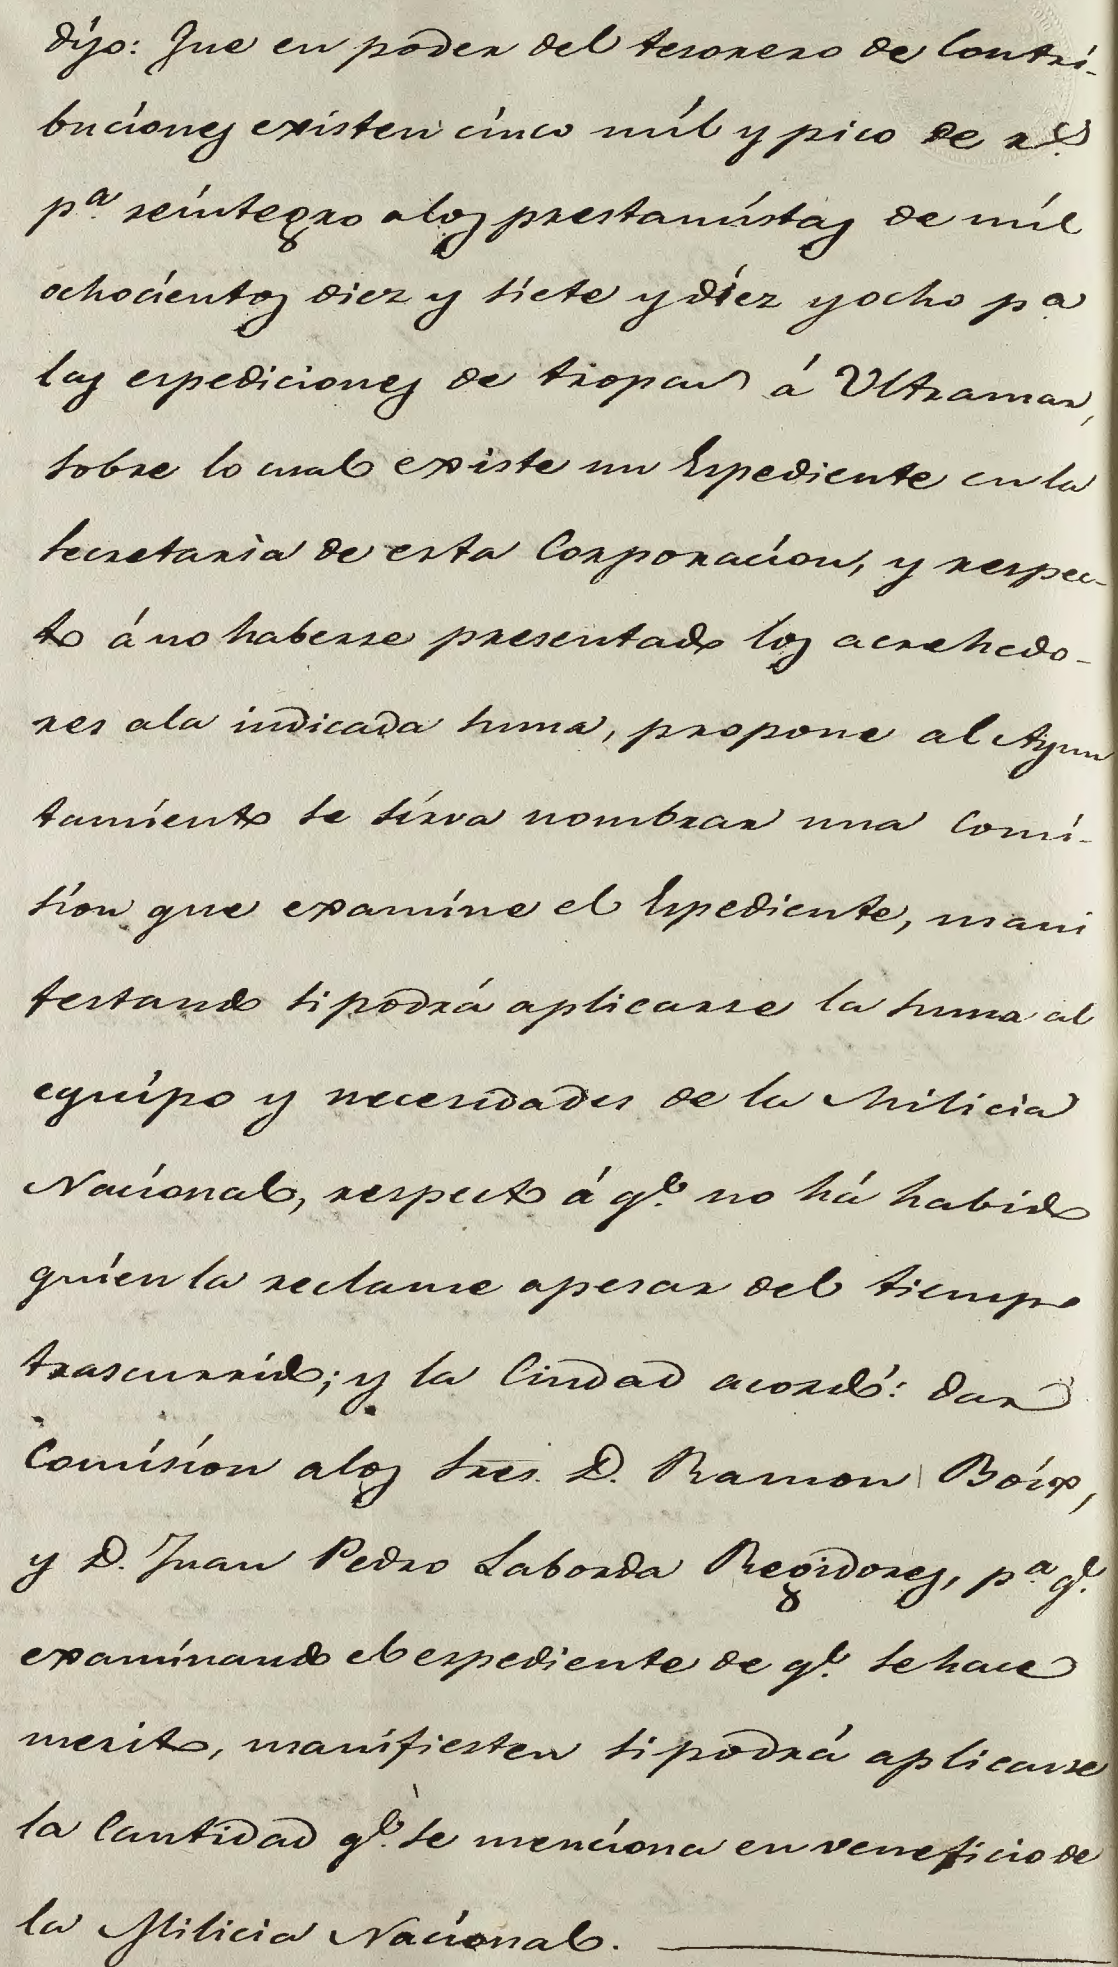 dijo: Que en poder del tesorero de Contri-
buciones existen cinco mil y pico de r.s
p.a reintegro alos prestamistas de mil
ochocientos diez y siete y diez y ocho pa
las espediciones de tropas á Ultramar,
sobre lo cual existe un Espediente en la
Secretaria de esta Corporacion, y respec-
to á no haberse presentado los acrehedo-
res ala indicada suma, propone al Ayun
tamiento se sirva nombrar una Comi-
sion que examine el Espediente, mani
festando si podrá aplicarse la suma al
equipo y necesidades de la Milicia
Nacional, respecto á q.e no há habido
quien la reclame apesar del tiempo
trascurrido; y la Ciudad acordó: dar
Comision alos Sres. D. Ramon Boix,
y D. Juan Pedro Laborda Regidores, p.a q.e
examinando el espediente de q.e se hace
merito, manifiesten si podrá aplicarse
la Cantidad q.e se menciona en veneficio de
la Milicia Nacional.